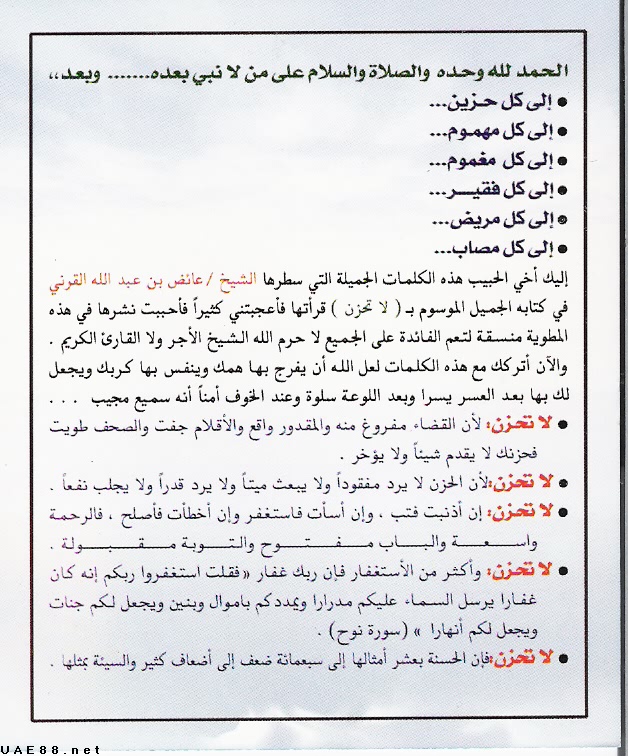 الحمد لله وحده والصلاة والسلام على من لا نبي بعده....... وبعد،،
● إلى كل حزين...
● إلى كل مهموم...
● إلى كل مغموم...
● إلى كل فقيـــر...
● إلى كل مريض...
● إلى كل مصاب...
إليك أخي الحبيب هذه الكلمات الجميلة التي سطرها الشيخ / عائض بن عبد الله القرني
في كتابه الجميل الموسوم بـ ( لا تحزن ) قرأتها فأعجبتني كثيراً فأحببت نشرها في هذه
المطوية منسقة لتعم الفائدة على الجميع لا حرم الله الشيخ الأجر ولا القارئ الكريم .
والآن أتركك مع هذه الكلمات لعل الله أن يفرج بها همك وينفس بها كربك ويجعل
لك بها بعد العسر يسرا وبعد اللوعة سلوة وعند الخوف أمناً أنه سميع مجيب . . .
● لا تحزن: لأن القضاء مفروغ منه والمقدور واقع والأقلام جفت والصحف طويت
فحزنك لا يقدم شيئاً ولا يؤخر .
● لا تحزن: لأن الحزن لا يرد مفقوداً ولا يبعث ميتاً ولا يرد قدراً ولا يجلب نفعاً .
● لا تحزن: إن أذنبت فتب ، وإن أسأت فاستغفر وإن أخطأت فأصلح ، فالرحمة
واســعــــة والبــاب مــفــتــــوح والتــوبة مــقــبــولــة .
● لا تحزن: وأكثر من الأستغفار فإن ربك غفار «فقلت استغفروا ربكم إنه كان
غفارا يرسل السماء عليكم مدرارا ويمددكم باموال وبنين ويجعل لكم جنات
ويجعل لكم أنهارا » (سورة نوح) .
● لا تحزن: فإن الحسنة بعشر أمثالها إلى سبعمائة ضعف إلى أضعاف كثير والسيئة بمثلها .
UAE88.net